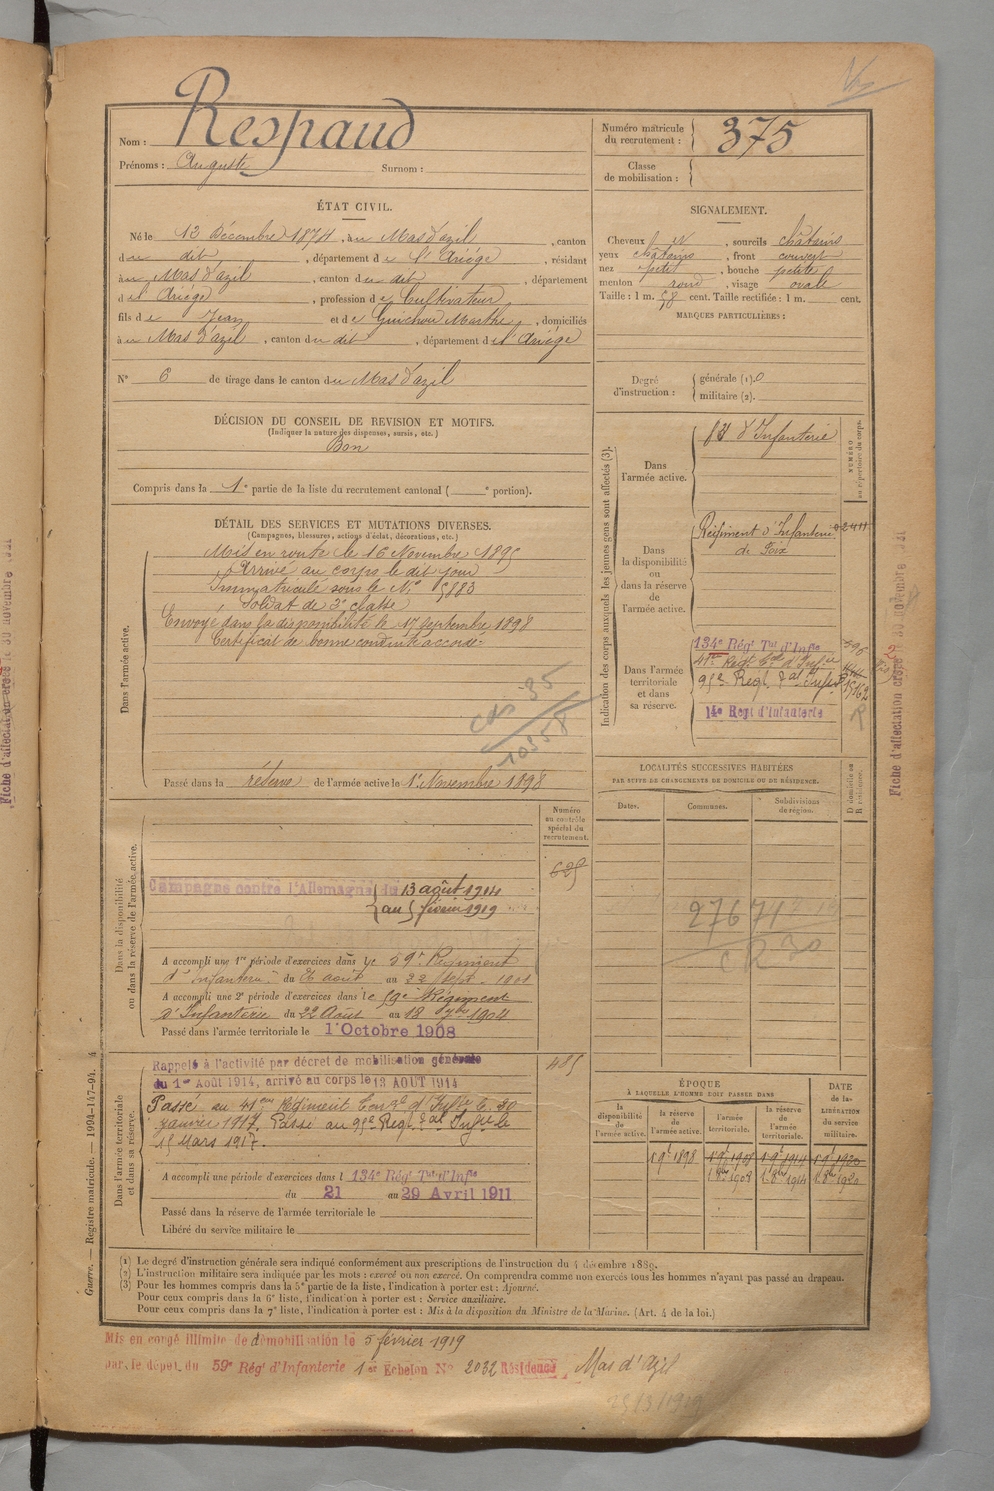 Nom : Respaud
Prénoms : Auguste Surnom :
Numéro matricule du recrutement : 375
Classe de mobilisation :
ÉTAT CIVIL.
Né le 12 Décembre 1874, à u Mas d'azil, canton
d u dit, département d e l'Ariège, résidant
à u Mas d'azil, canton d u dit, département
d e l'Ariège, profession d e Cultivateur
fils d e Jean et d e Guichou Marthe, domiciliés
à u Mas d'azil, canton d u dit, département d e l'Ariège
N° 6 de tirage dans le canton d u Mas d'azil
SIGNALEMENT.
Cheveux, sourcils châtains
yeux châtains, front couvert
nez petit, bouche petite
menton rond, visage ovale
Taille : 1 m. 58 cent. Taille rectifiée : 1 m. cent.
MARQUES PARTICULIÈRES :
Degré d'instruction : générale (1). 0
militaire (2).
DÉCISION DU CONSEIL DE REVISION ET MOTIFS.
(Indiquer la nature des dispenses, sursis, etc.)
Bon
Compris dans la 1e partie de la liste du recrutement cantonal ( e portion).
DÉTAIL DES SERVICES ET MUTATIONS DIVERSES.
(Campagnes, blessures, actions d'éclat, décorations, etc.)
Dans l'armée active.
Mis en route le 16 Novembre 1895
Arrivé au corps le dit jour
Immatriculé sous le N° 5883
Soldat de 2e classe
Envoyé dans la disponibilité le 17 Septembre 1898
Certificat de bonne conduite accordé
cds 35
10358
Passé dans la réserve de l'armée active le 1er Novembre 1898
Indication des corps auxquels les jeunes gens sont affectés (3).
NUMÉRO au répertoire du corps.
Dans l'armée active.
d'Infanterie
Dans la disponibilité ou dans la réserve de l'armée active.
Régiment d'Infanterie 02411
de Foix
Dans l'armée territoriale et dans sa réserve.
134e Rég' Tal d'Infie
95e Regt Tal Infie
14e Regt d'Infanterie
LOCALITÉS SUCCESSIVES HABITÉES
PAR SUITE DE CHANGEMENTS DE DOMICILE OU DE RÉSIDENCE.
Dates. Communes. Subdivisions de région.
D domicile ou R résidence.
27671
CR 30
Dans la disponibilité ou dans la réserve de l'armée active.
Numéro au contrôle spécial du recrutement.
625
Campagne contre l'Allemagne du 13 août 1914
au 5 février 1919
A accompli une 1re période d'exercices dans le 59e Régiment
d'Infanterie du 26 août au 22 Sept. 1901
A accompli une 2e période d'exercices dans le 59e Régiment
d'Infanterie du 22 Août au 18 7bre 1904
Passé dans l'armée territoriale le 1er Octobre 1908
Dans l'armée territoriale et dans sa réserve.
485
Rappelé à l'activité par décret de mobilisation générale
du 1er Août 1914, arrivé au corps le 13 AOUT 1914
Passé au 41eme Régiment d'Infie le 30
janvier 1917. Passé au 95e Regt Tal Infie le
15 Mars 1917.
A accompli une période d'exercices dans l 134e Rég' Tal d'Infie
du 21 au 29 Avril 1911
Passé dans la réserve de l'armée territoriale le
Libéré du service militaire le
ÉPOQUE
À LAQUELLE L'HOMME DOIT PASSER DANS
la disponibilité de l'armée active. la réserve de l'armée active. l'armée territoriale. la réserve de l'armée territoriale.
DATE de la LIBÉRATION du service militaire.
1 9e 1898 1 9e 1908 1 9e 1914 1 9e 1920
1 8bre 1908 1 8bre 1914 1 8bre 1920
(1) Le degré d'instruction générale sera indiqué conformément aux prescriptions de l'instruction du 4 décembre 1889.
(2) L'instruction militaire sera indiquée par les mots : exercé ou non exercé. On comprendra comme non exercés tous les hommes n'ayant pas passé au drapeau.
(3) Pour les hommes compris dans la 5e partie de la liste, l'indication à porter est : Ajourné.
Pour ceux compris dans la 6e liste, l'indication à porter est : Service auxiliaire.
Pour ceux compris dans la 7e liste, l'indication à porter est : Mis à la disposition du Ministre de la Marine. (Art. 4 de la loi.)
Guerre. — Registre matricule. — 1994-147-94.
Mis en congé illimité de démobilisation le 5 février 1919
par le dépôt du 59e Rég' d'Infanterie 1er Echelon N° 2032 Résidence Mas d'Azil
25/3/1919
Fiche d'affectation créée le 30 novembre 1931